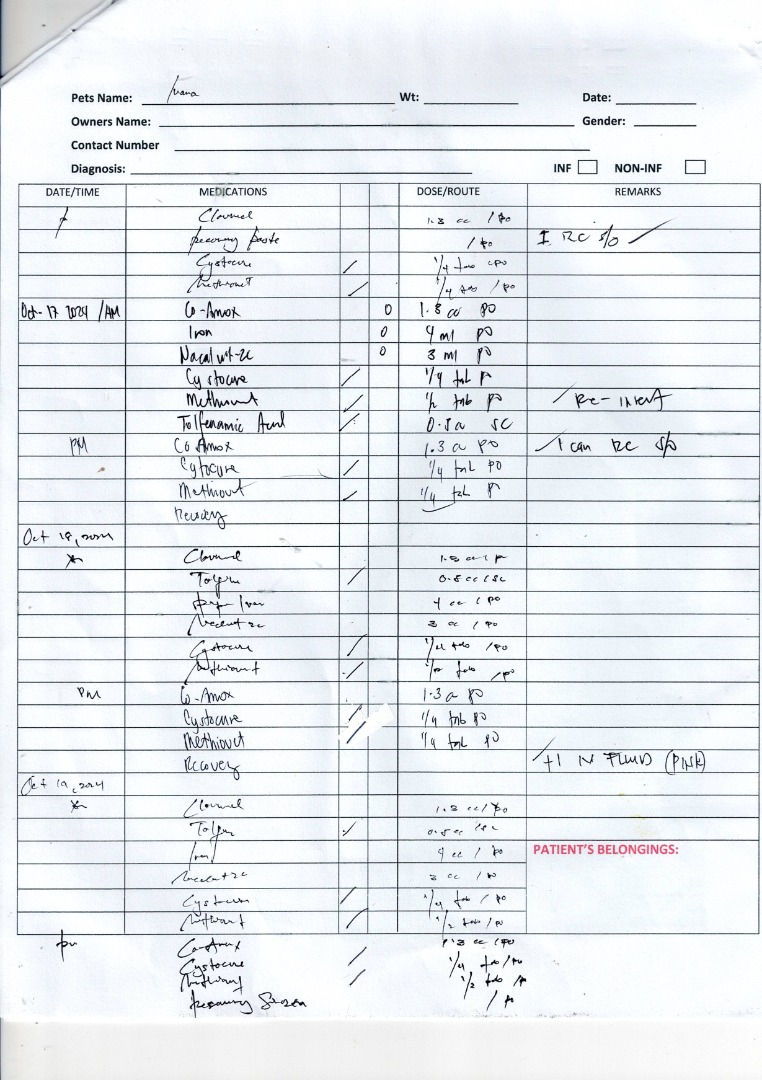 Pets Name: Wt: Date:
Owners Name: Gender:
Contact Number
Diagnosis: INF NON-INF
DATE/TIME MEDICATIONS DOSE/ROUTE REMARKS
1.3 cc / po
recovery paste / po I RC s/o
Cystocure / 1/4 tab po
Methiovet / 1/4 tab / po
Oct-17 2024 /AM Co-Amox 0 1.3 cc po
Iron 0 4 ml po
0 3 ml po
Cystocure / 1/4 tab p
Methiovet / 1/2 tab po
Tolfenamic Acid / 0.5 a SC
PM Co Amox 1.3 a po I can RC s/o
Cytocure / 1/4 tab po
Methiovet / 1/4 tab p
Recovery
Oct 18, 2024
/ 0.5 cc / sc
4 cc / po
3 cc / po
Cystocure / 1/4 tab / po
Methiovet / tab / po
PM Co-Amox 1.3 a po
Cystocure / 1/4 tab po
Methiovet / 1/4 tab po
Recovery +1 IV FLUID (PINK)
Oct 19, 2024
1.3 cc / po
/ 0.5 cc / sc
Iron 4 cc / po
PATIENT'S BELONGINGS:
3 cc / po
Cystocure / 1/4 tab / po
Methiovet / 1/2 tab / po
pm Co-Amox 1.3 cc / po
Cystocure / 1/4 tab / po
Methiovet / 1/2 tab / po
recovery / po